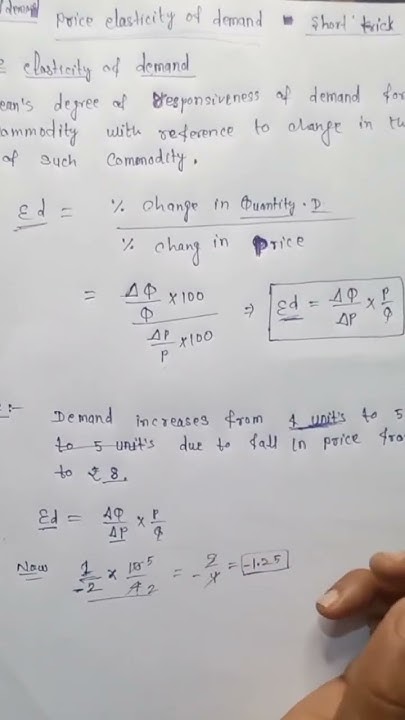 demand Price elasticity of demand - Short trick
elasticity of demand
ean's degree of responsiveness of demand for
ommodity with reference to change in th
of such Commodity.
Ed = % change in Quantity.D / % chang in price
= ΔQ/Q ×100 / ΔP/P ×100 ⇒ Ed = ΔQ/ΔP × P/Q
:- Demand increases from 4 units to 5
to 5 unit's due to fall in price fro
to ₹ 8.
Ed = ΔQ/ΔP × P/Q
Now 1/-2 × 10 5/4 2 = - = -1.25